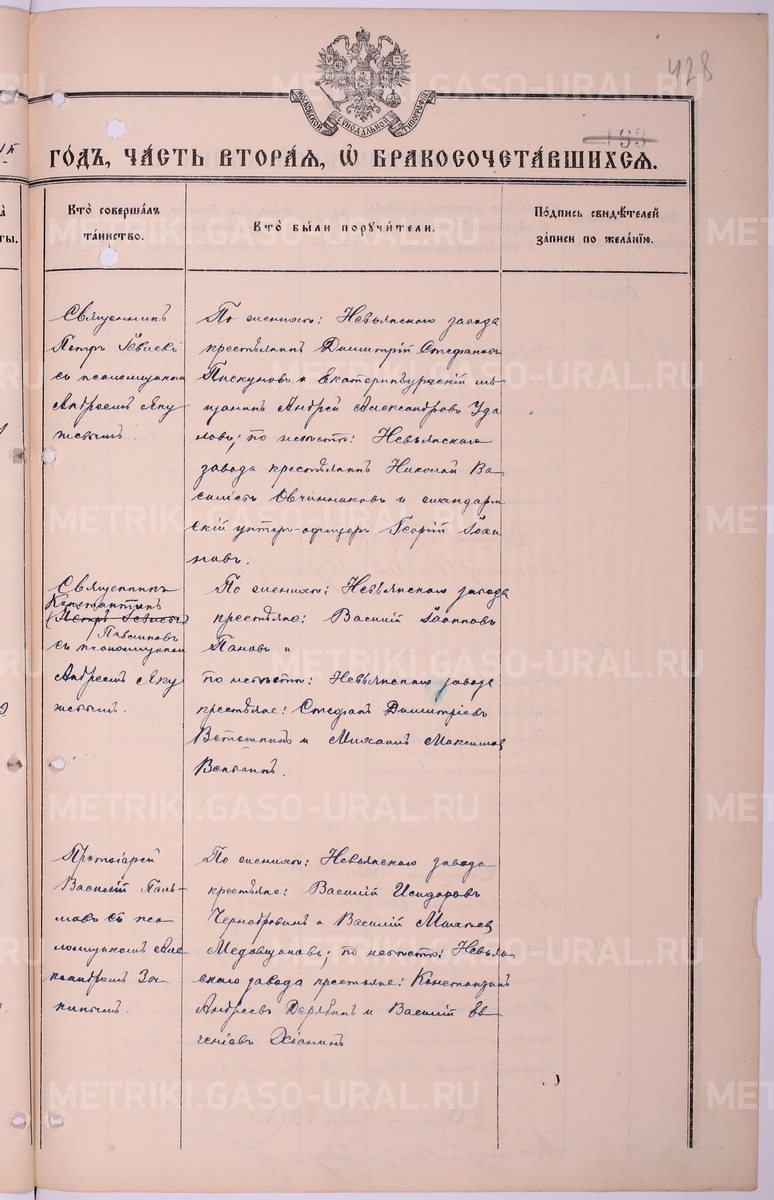 428
МОСКОВСКОЙ СѴНОДАЛЬНОЙ ТИПОГРАФІИ
193
ГОДЪ, ЧАСТЬ ВТОРАЯ, Ѡ БРАКОСОЧЕТАВШИХСЯ.
Кто совершалъ
таинство.
Кто были поручители.
Подпись свидѣтелей
записи по желанію.
Священникъ
Петръ
съ псаломщикомъ
Андреемъ Яку
шевымъ.
По женихѣ: Невьянскаго завода
крестьянинъ Димитрій Стефановъ
Пискуновъ и Екатеринбургскій мѣ
щанинъ Андрей Александровъ Уда
ловъ; по невѣстѣ: Невьянскаго
завода крестьянинъ Николай Ва
сильевъ Овчинниковъ и жандарм
скій унтеръ-офицеръ Георгій Іоан
новъ.
Священникъ
Константинъ
Петръ
съ псаломщикомъ
Андреемъ Яку
шевымъ.
По женихѣ: Невьянскаго завода
крестьяне: Василій Іоанновъ
Пановъ и
по невѣстѣ: Невьянскаго завода
крестьяне: Стефанъ Димитріевъ
и Михаилъ Максимов
Протоіерей
Василій Паль-
мовъ съ пса
ломщикомъ Але
ксандромъ Зы
кинымъ.
По женихѣ: Невьянскаго завода
крестьяне: Василій Исидоровъ
Чернобровинъ и Василій
Медовщиковъ; по невѣстѣ: Невьян
скаго завода крестьяне: Константинъ
Андреевъ Дерябинъ и Василій Ев
геніевъ
METRIKI.GASO-URAL.RU